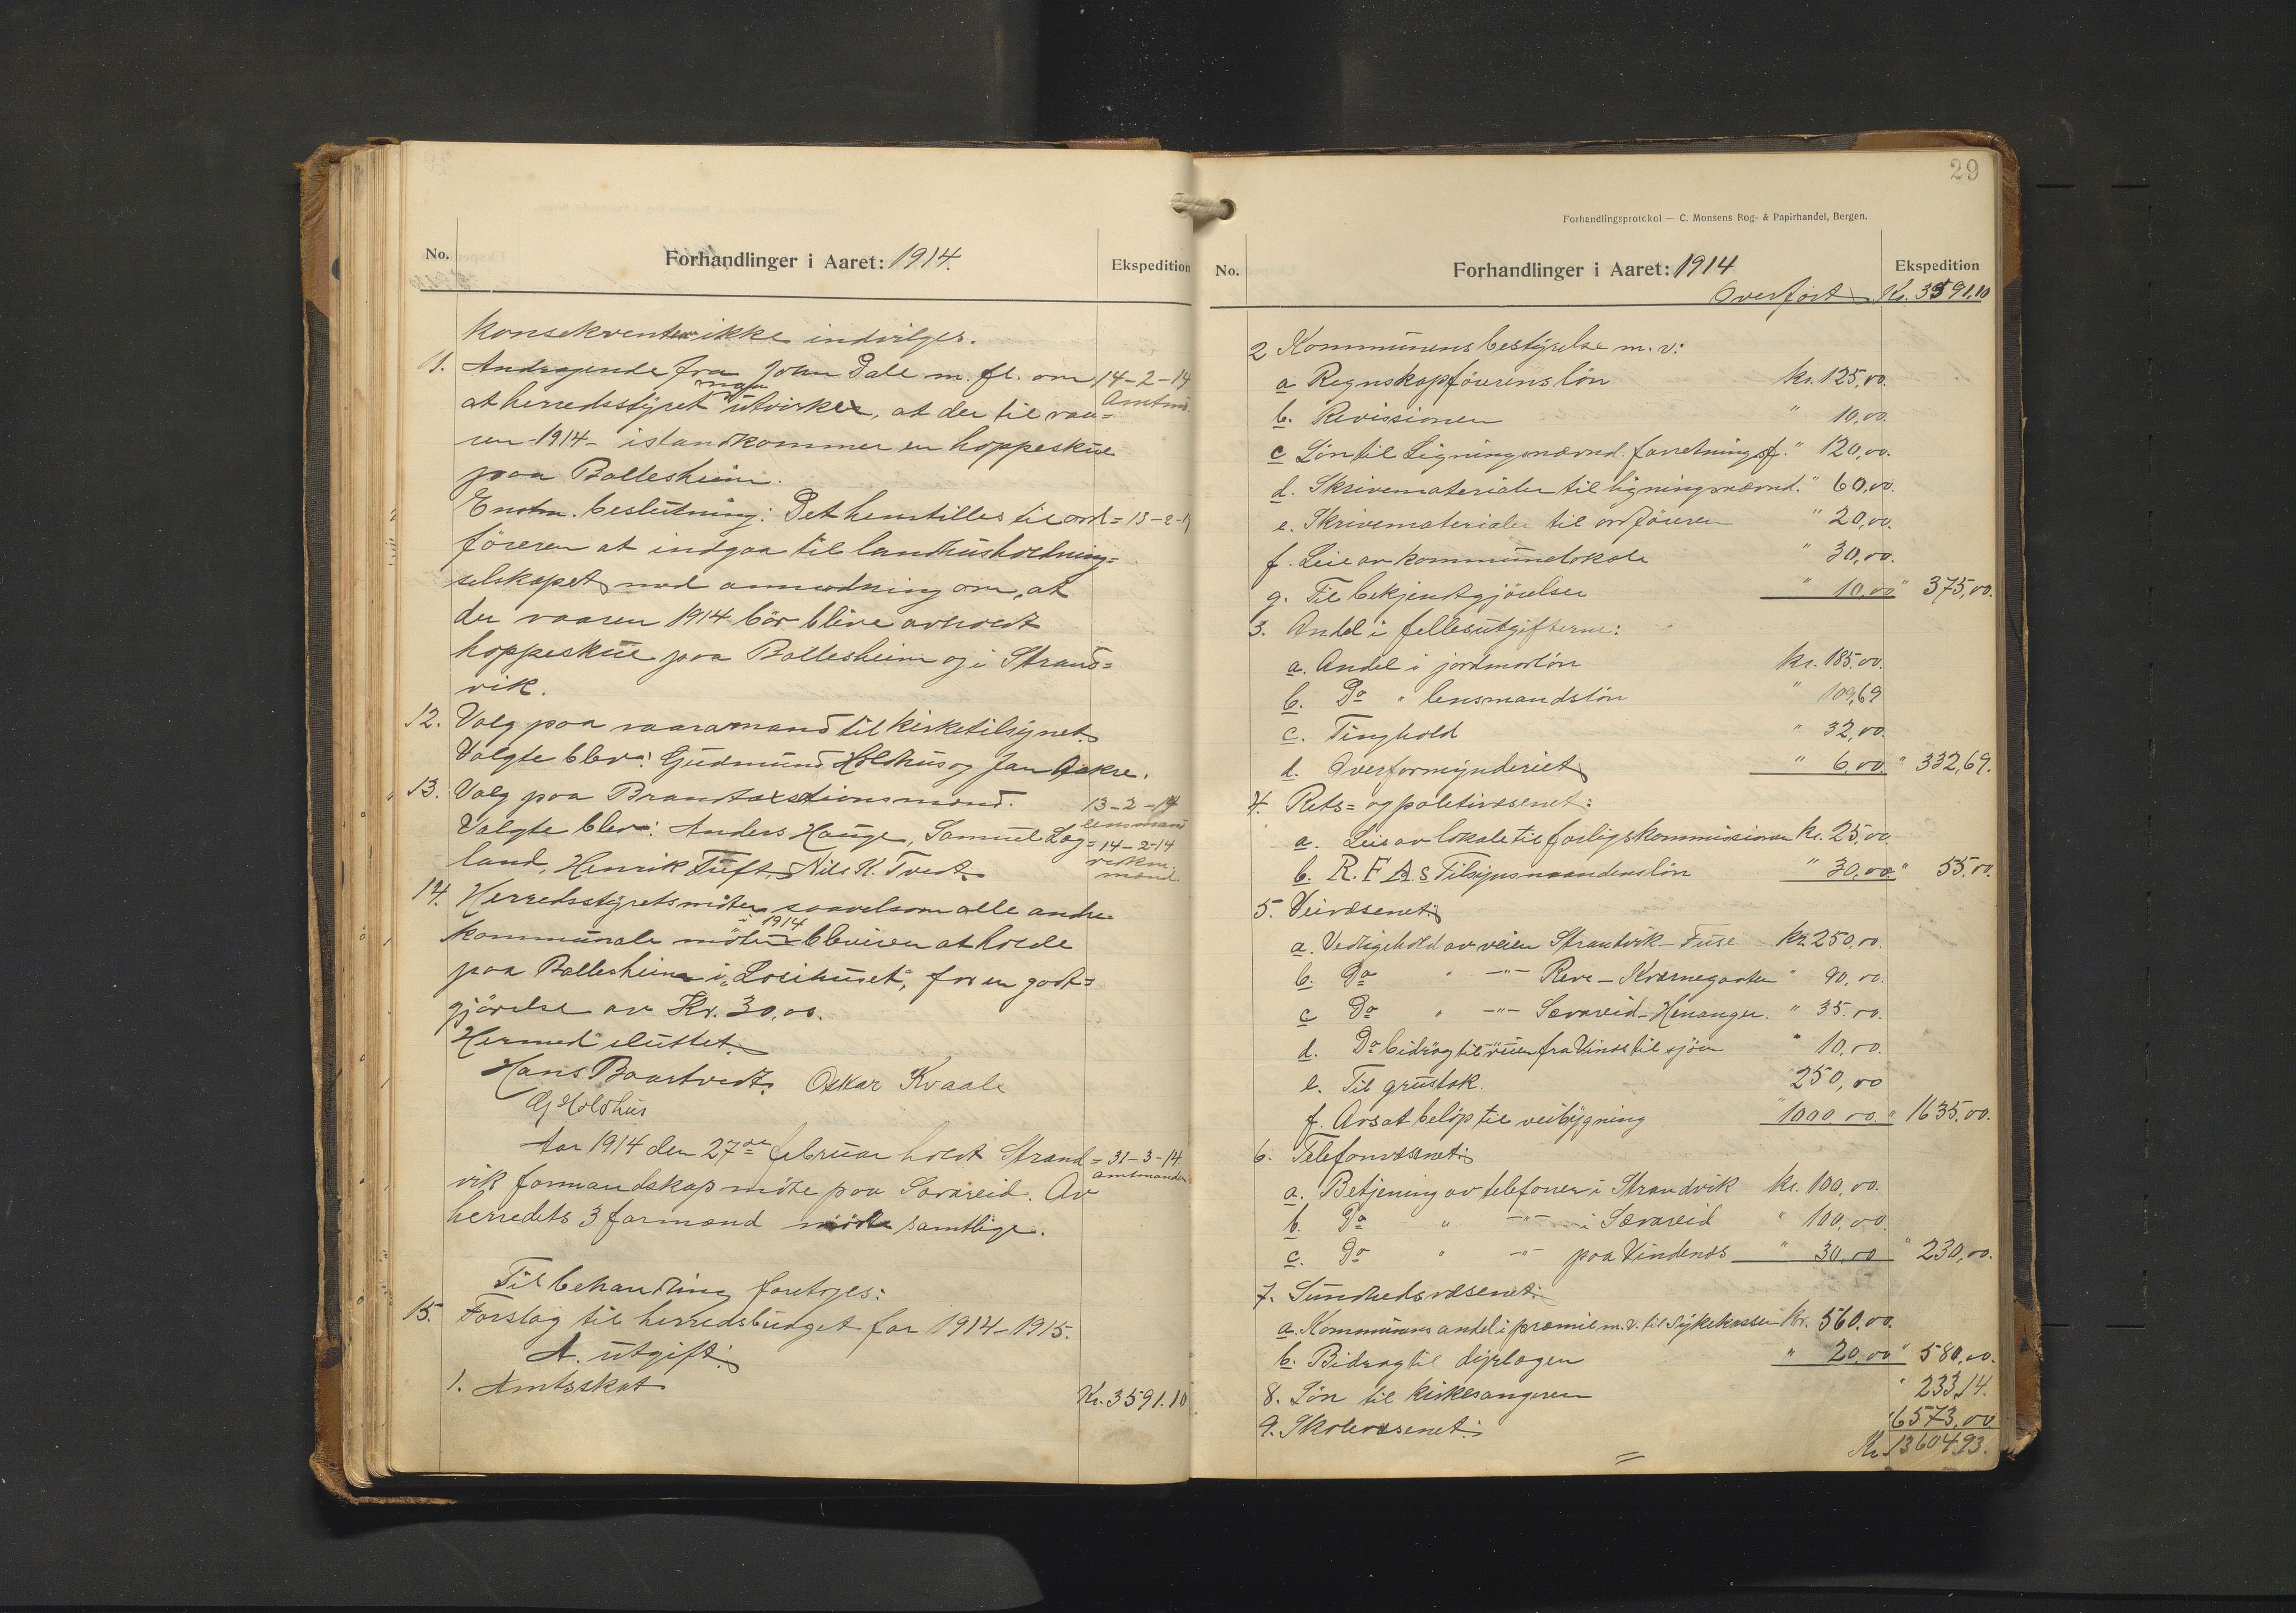 No.
Forhandlinger i Aaret: 1914.
Ekspedition
konsekventen ikke indvilges.
11. Andragende fra John Dale m. fl. om 14-2-14
at herredsstyret maa utvirke, at der til vaa= Amtmd.
ren 1914 - istandkommer en hoppeskue
paa Ballesheim.
Enstm. beslutning: Det henstilles til ord= 13-2-14
föreren at indgaa til landhusholdning=
selskapet med anmodning om, at
der vaaren 1914 bör blive avholdt
hoppeskue paa Ballesheim og i Strand=
vik.
12. Valg paa varamand til kirketilsynet.
Valgte blev: Gudmund Holdhus og Jan Aakre.
13. Valg paa Brandtakstionsmænd. 13-2-14
lensmand
Valgte blev: Anders Hauge, Samuel Lög= 14-2-14
land, Henrik Tuft, Nils K. Tvedt. vedkm.
mænd.
14. Herredsstyretsmöter saavelsom alle andre
kommunale möter i 1914 bleven at holde
paa Ballesheim i "Losihuset", for en godt=
gjörelse av Kr. 30,00.
Hermed sluttet.
Hans Baartvedt. Oskar Kvaale
G Holdhus
Aar 1914 den 27de februar holdt Strand= 31-3-14
vik formandskap möte paa Sævareid. Av amtmanden
herredets 3 formænd mödte samtlige.
Til behandling foretoges:
15. Forslag til herredsbudget for 1914-1915.
A. utgift:
1. Amtsskat Kr. 3591.10
29
Forhandlingsprotokol — C. Monsens Bog- & Papirhandel, Bergen.
No.
Forhandlinger i Aaret: 1914
Ekspedition
Overfört Kr. 3591,10
2 Kommunens bestyrelse m.v:
a Regnskapförerens lön kr. 125,00.
b. Revissionen " 10,00.
c Lön til Ligningsnævnd. forretningsf. " 120,00.
d. Skrivematerialer til ligningsnævnd. " 60,00.
e. Skrivematerialer til ordföreren " 20,00.
f. Leie av kommunelokale " 30,00.
g. Til bekjendtgjörelser " 10,00 " 375,00.
3. Andel i fellesutgifterne:
a. Andel i jordmorlön kr. 185.00.
b. Do " lensmandslön " 109,69
c. Tinghold " 32,00.
d. Overformynderiet " 6,00 " 332,69.
4. Rets= og politivæsenet:
a. Leie av lokale til forligskommissionen kr. 25,00.
b. R.F.A.s Tilsynsmandenslön " 30,00 " 55,00.
5. Veivæsenet:
a. Vedligehold av veien Strandvik-Fuse kr. 250,00.
b. Do " -"- Reve-Kvernegaarden " 90,00.
c Do " -"- Sævareid-Henanger. " 35.00.
d. Do bidrag til veien fra Vinæs til sjöen " 10,00.
e. Til grustak. 250,00
f. Avsat belöp til veibygning " 1000,00. " 1635.00.
6. Telefonvæsenet:
a. Betjening av telefonen i Strandvik kr. 100,00.
b. Do " -"- i Sævareid " 100,00.
c. Do " -"- paa Vindenæs " 30,00 " 230,00.
7. Sundhedsvæsenet:
a. Kommunens andel i præmie m.v. til Sykekassen Kr. 560.00.
b. Bidrag til dyrlægen " 20,00 " 580,00.
8. Lön til kirkesangeren " 233,14.
9. Skolevæsenet: " 6573,00
Kr. 13604,93.